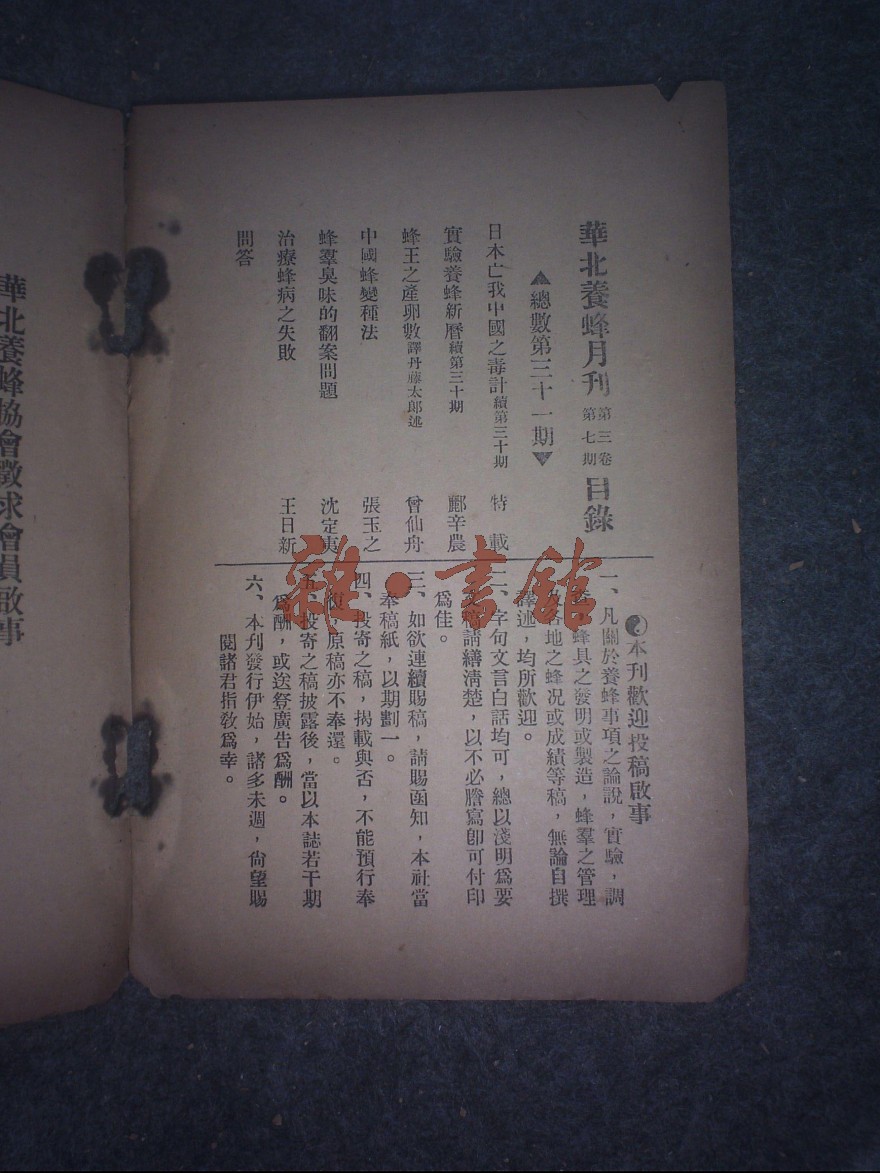 華北養蜂月刊 第三卷 第七期 目錄
▲總數第三十一期▼
日本亡我中國之毒計 續第三十期 特載
實驗養蜂新曆 續第三十期 鄺辛農
蜂王之產卵數 譯丹藤太郎述 曾仙舟
中國蜂變種法 張玉之
蜂羣臭味的翻案問題 沈定夷
治療蜂病之失敗 王日新
問答
本刊歡迎投稿啟事
一、凡關於養蜂事項之論說,實驗,調
蜂具之發明或製造,蜂羣之管理
各地之蜂况或成績等稿,無論自撰
譯述,均所歡迎。
二、字句文言白話均可,總以淺明爲要
文稿請繕淸楚,以不必謄寫卽可付印
爲佳。
三、如欲連續賜稿,請賜函知,本社當
奉稿紙,以期劃一。
四、投寄之稿,揭載與否,不能預行奉
復,原稿亦不奉還。
五、投寄之稿披露後,當以本誌若干期
爲酬,或送登廣告爲酬。
六、本刊發行伊始,諸多未週,尙望賜
閱諸君指敎爲幸。
華北養蜂協會徵求會員啟事
雜·書館